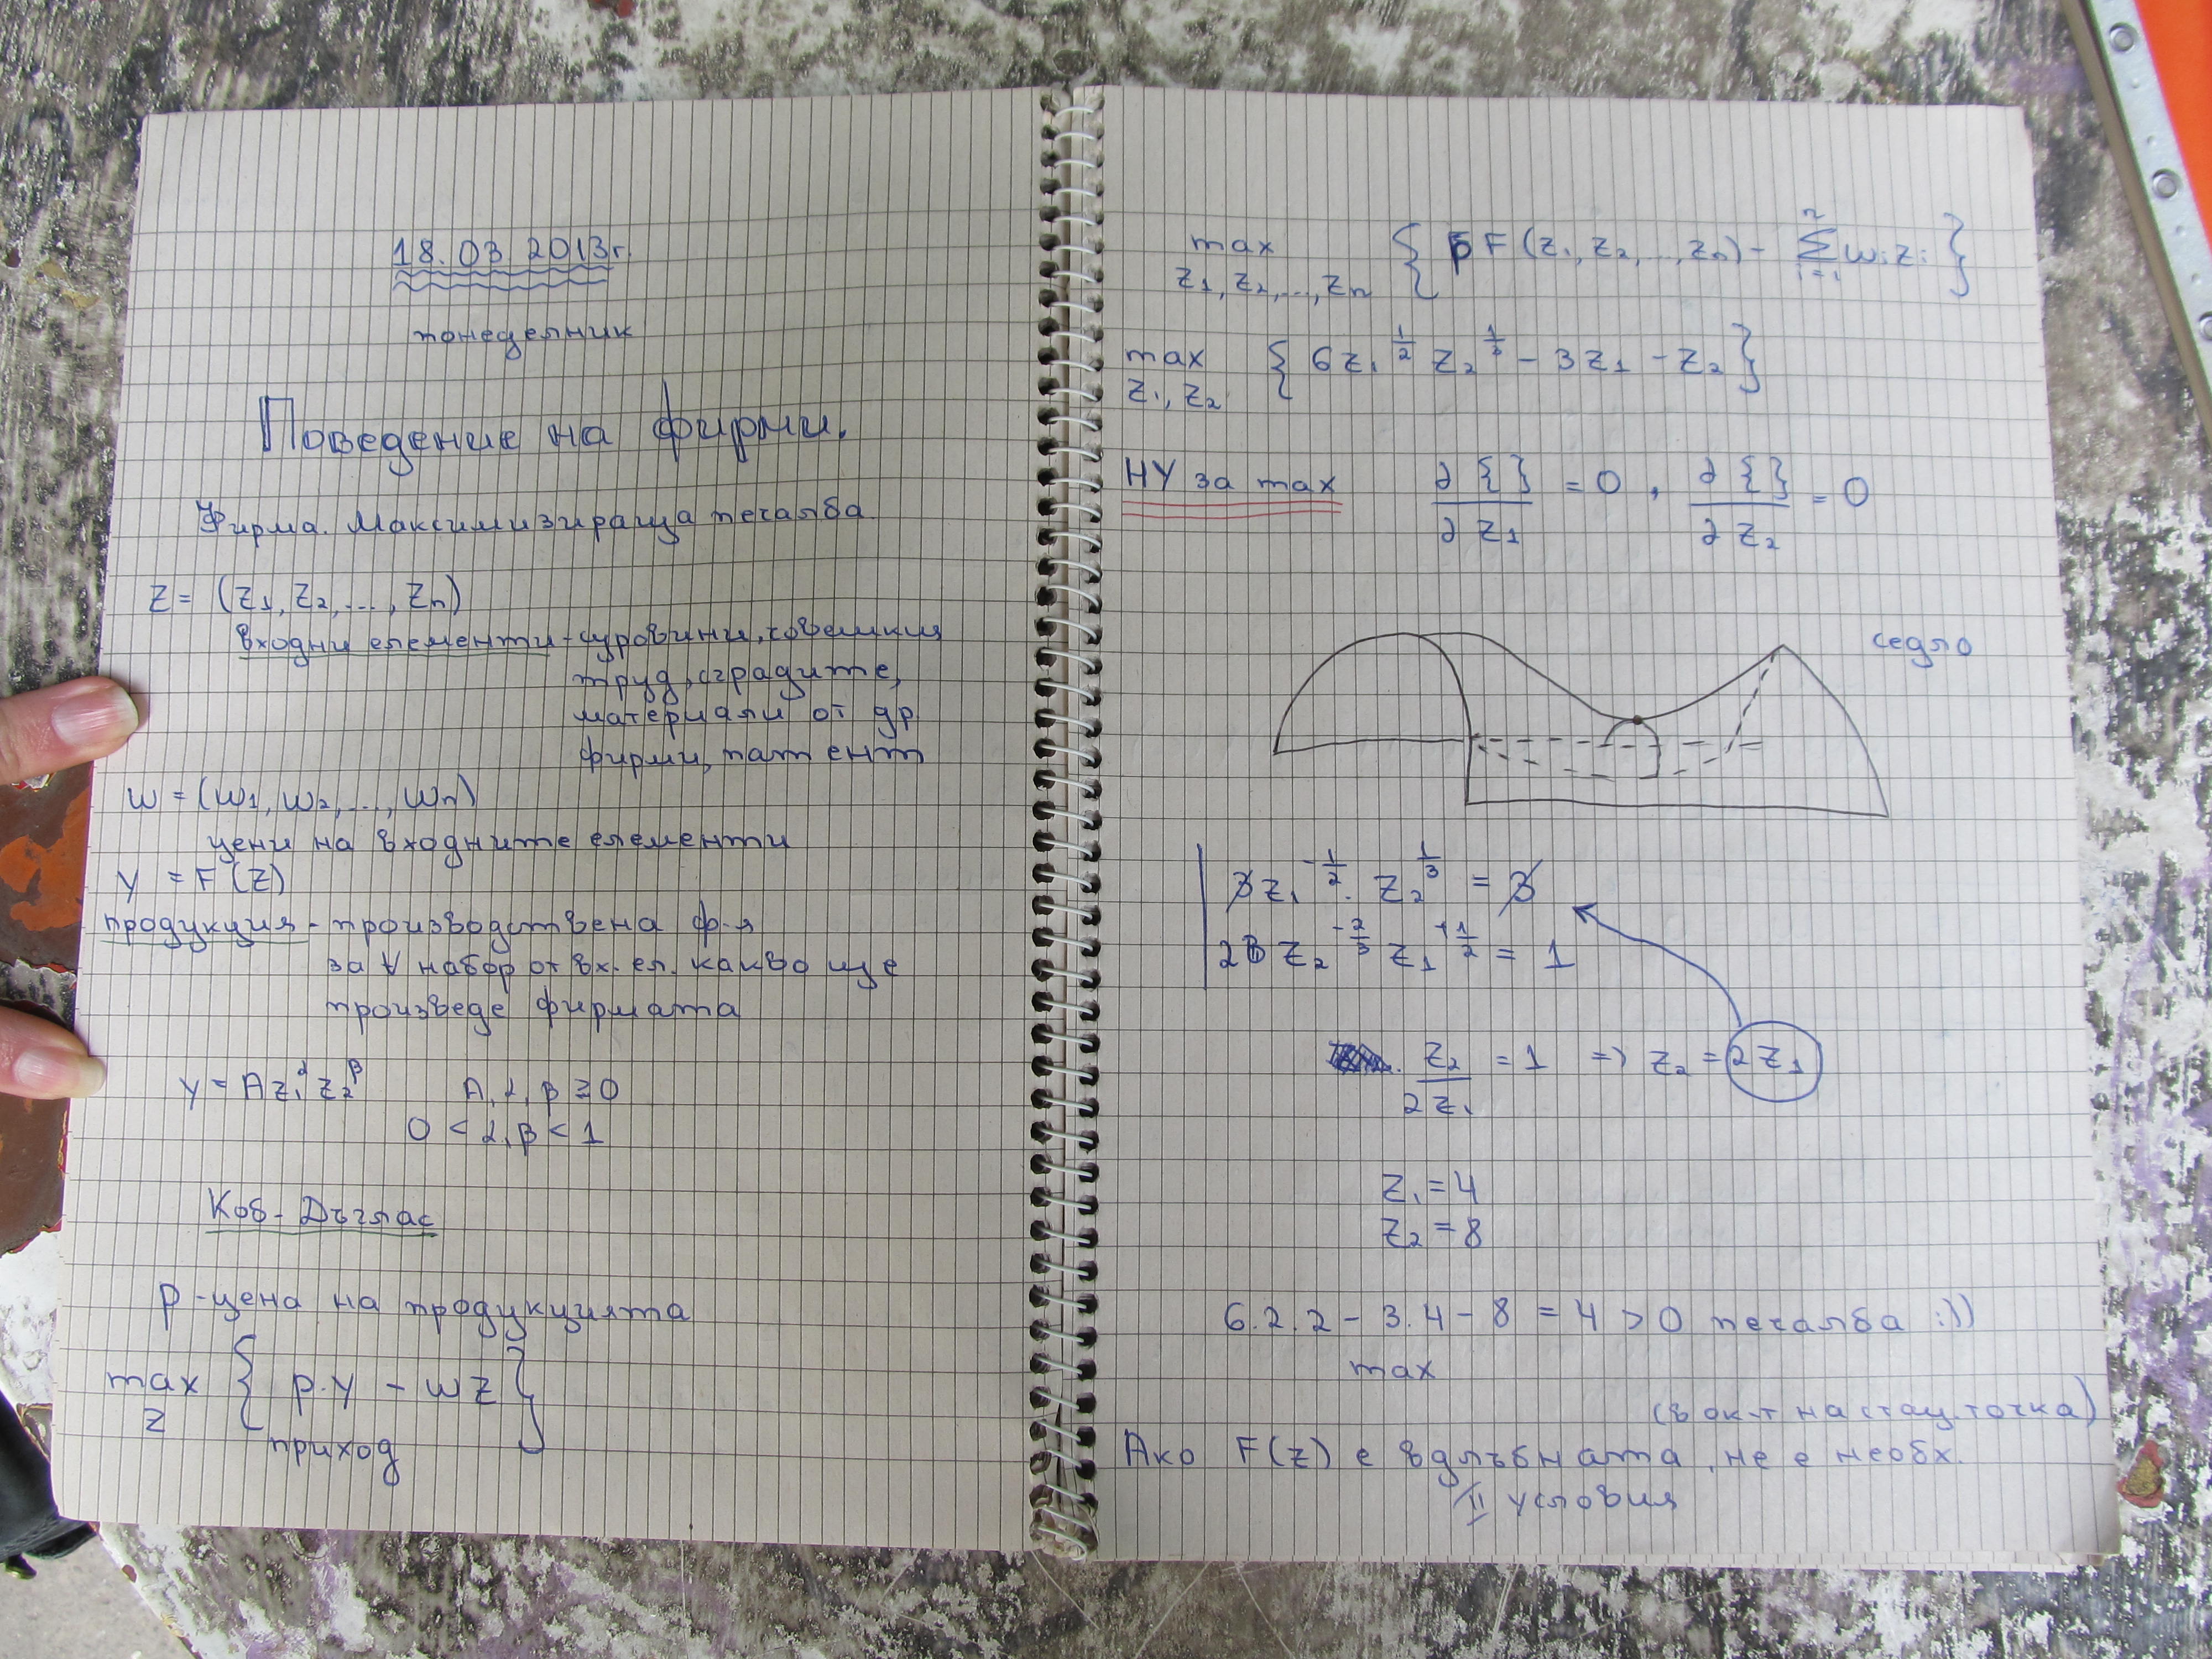 18.03 2013г.
понеделник
Поведение на фирми.
Фирма. Максимизираща печалба
z = (z₁, z₂, ..., zₙ)
входни елементи - суровини, човешкия
труд, сградите,
материали от др
фирми, патент
w = (w₁, w₂, ..., wₙ)
цени на входните елементи
y = F(z)
продукция - производствена ф-я
за ∀ набор от вх. ел. какво ще
произведе фирмата
y = Az₁^α z₂^β A, α, β ≥ 0
0 < α, β < 1
Коб-Дъглас
p - цена на продукцията
max { p.y - wz }
z
приход
max { p F(z₁, z₂, ..., zₙ) - ∑ wᵢzᵢ }
z₁, z₂, ..., zₙ i=1
max { 6z₁^(1/2) z₂^(1/3) - 3z₁ - z₂ }
z₁, z₂
НУ за max ∂{}/∂z₁ = 0, ∂{}/∂z₂ = 0
седло
3z₁^(-1/2) . z₂^(1/3) = 3
2 z₂^(-2/3) z₁^(+1/2) = 1
z₂/2z₁ = 1 => z₂ = 2z₁
z₁ = 4
z₂ = 8
6.2.2 - 3.4 - 8 = 4 > 0 печалба :))
max
(в ок-т на стац. точка)
Ако F(z) е вдлъбната, не е необх.
II условия